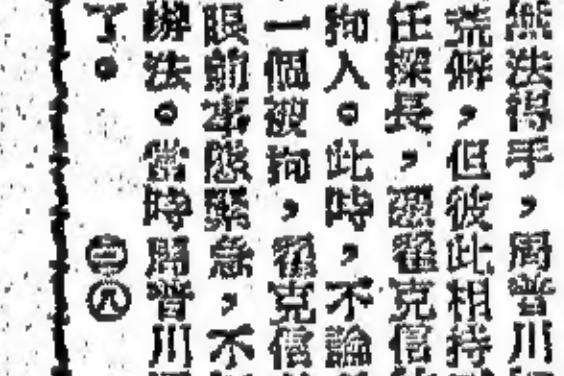 無法得手，周普川
荒僻，但彼此相持
任探長，翟克信
拘入。此時，不論
一個被拘，翟克信
眼前事態緊急，不
辦法。當時周普川
了。 ㊁㊇